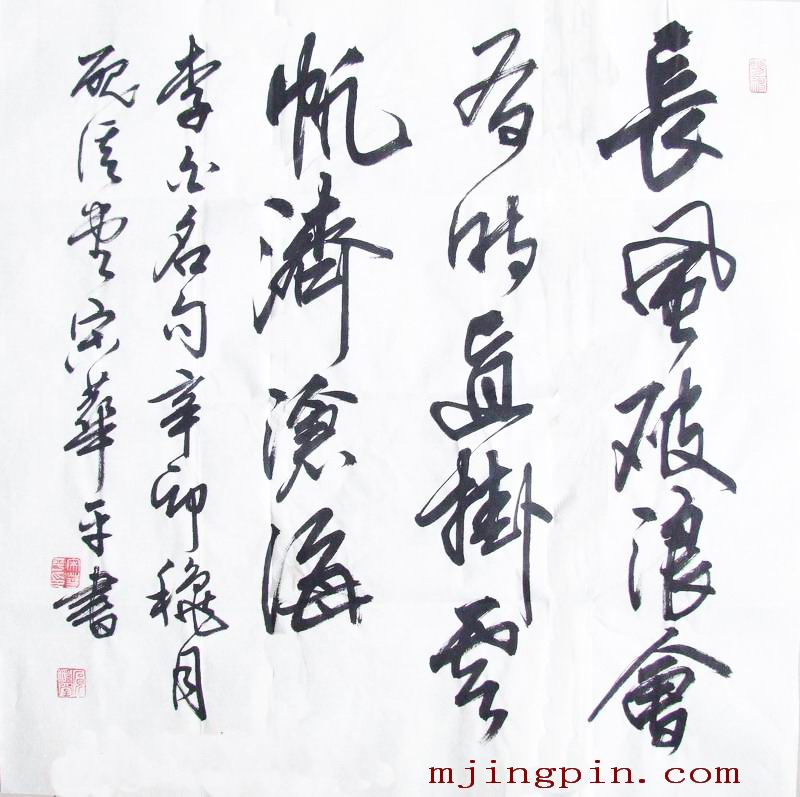 長風破浪會
有時直掛雲
帆濟滄海
李白名句辛卯穐月
堂宋華平書
mjingpin.com